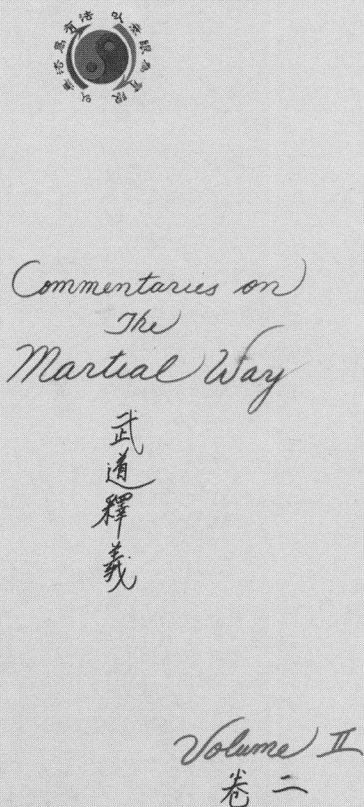 以無法為有法
以無限為有限
Commentaries on
The
Martial Way
武道釋義
Volume II
卷二